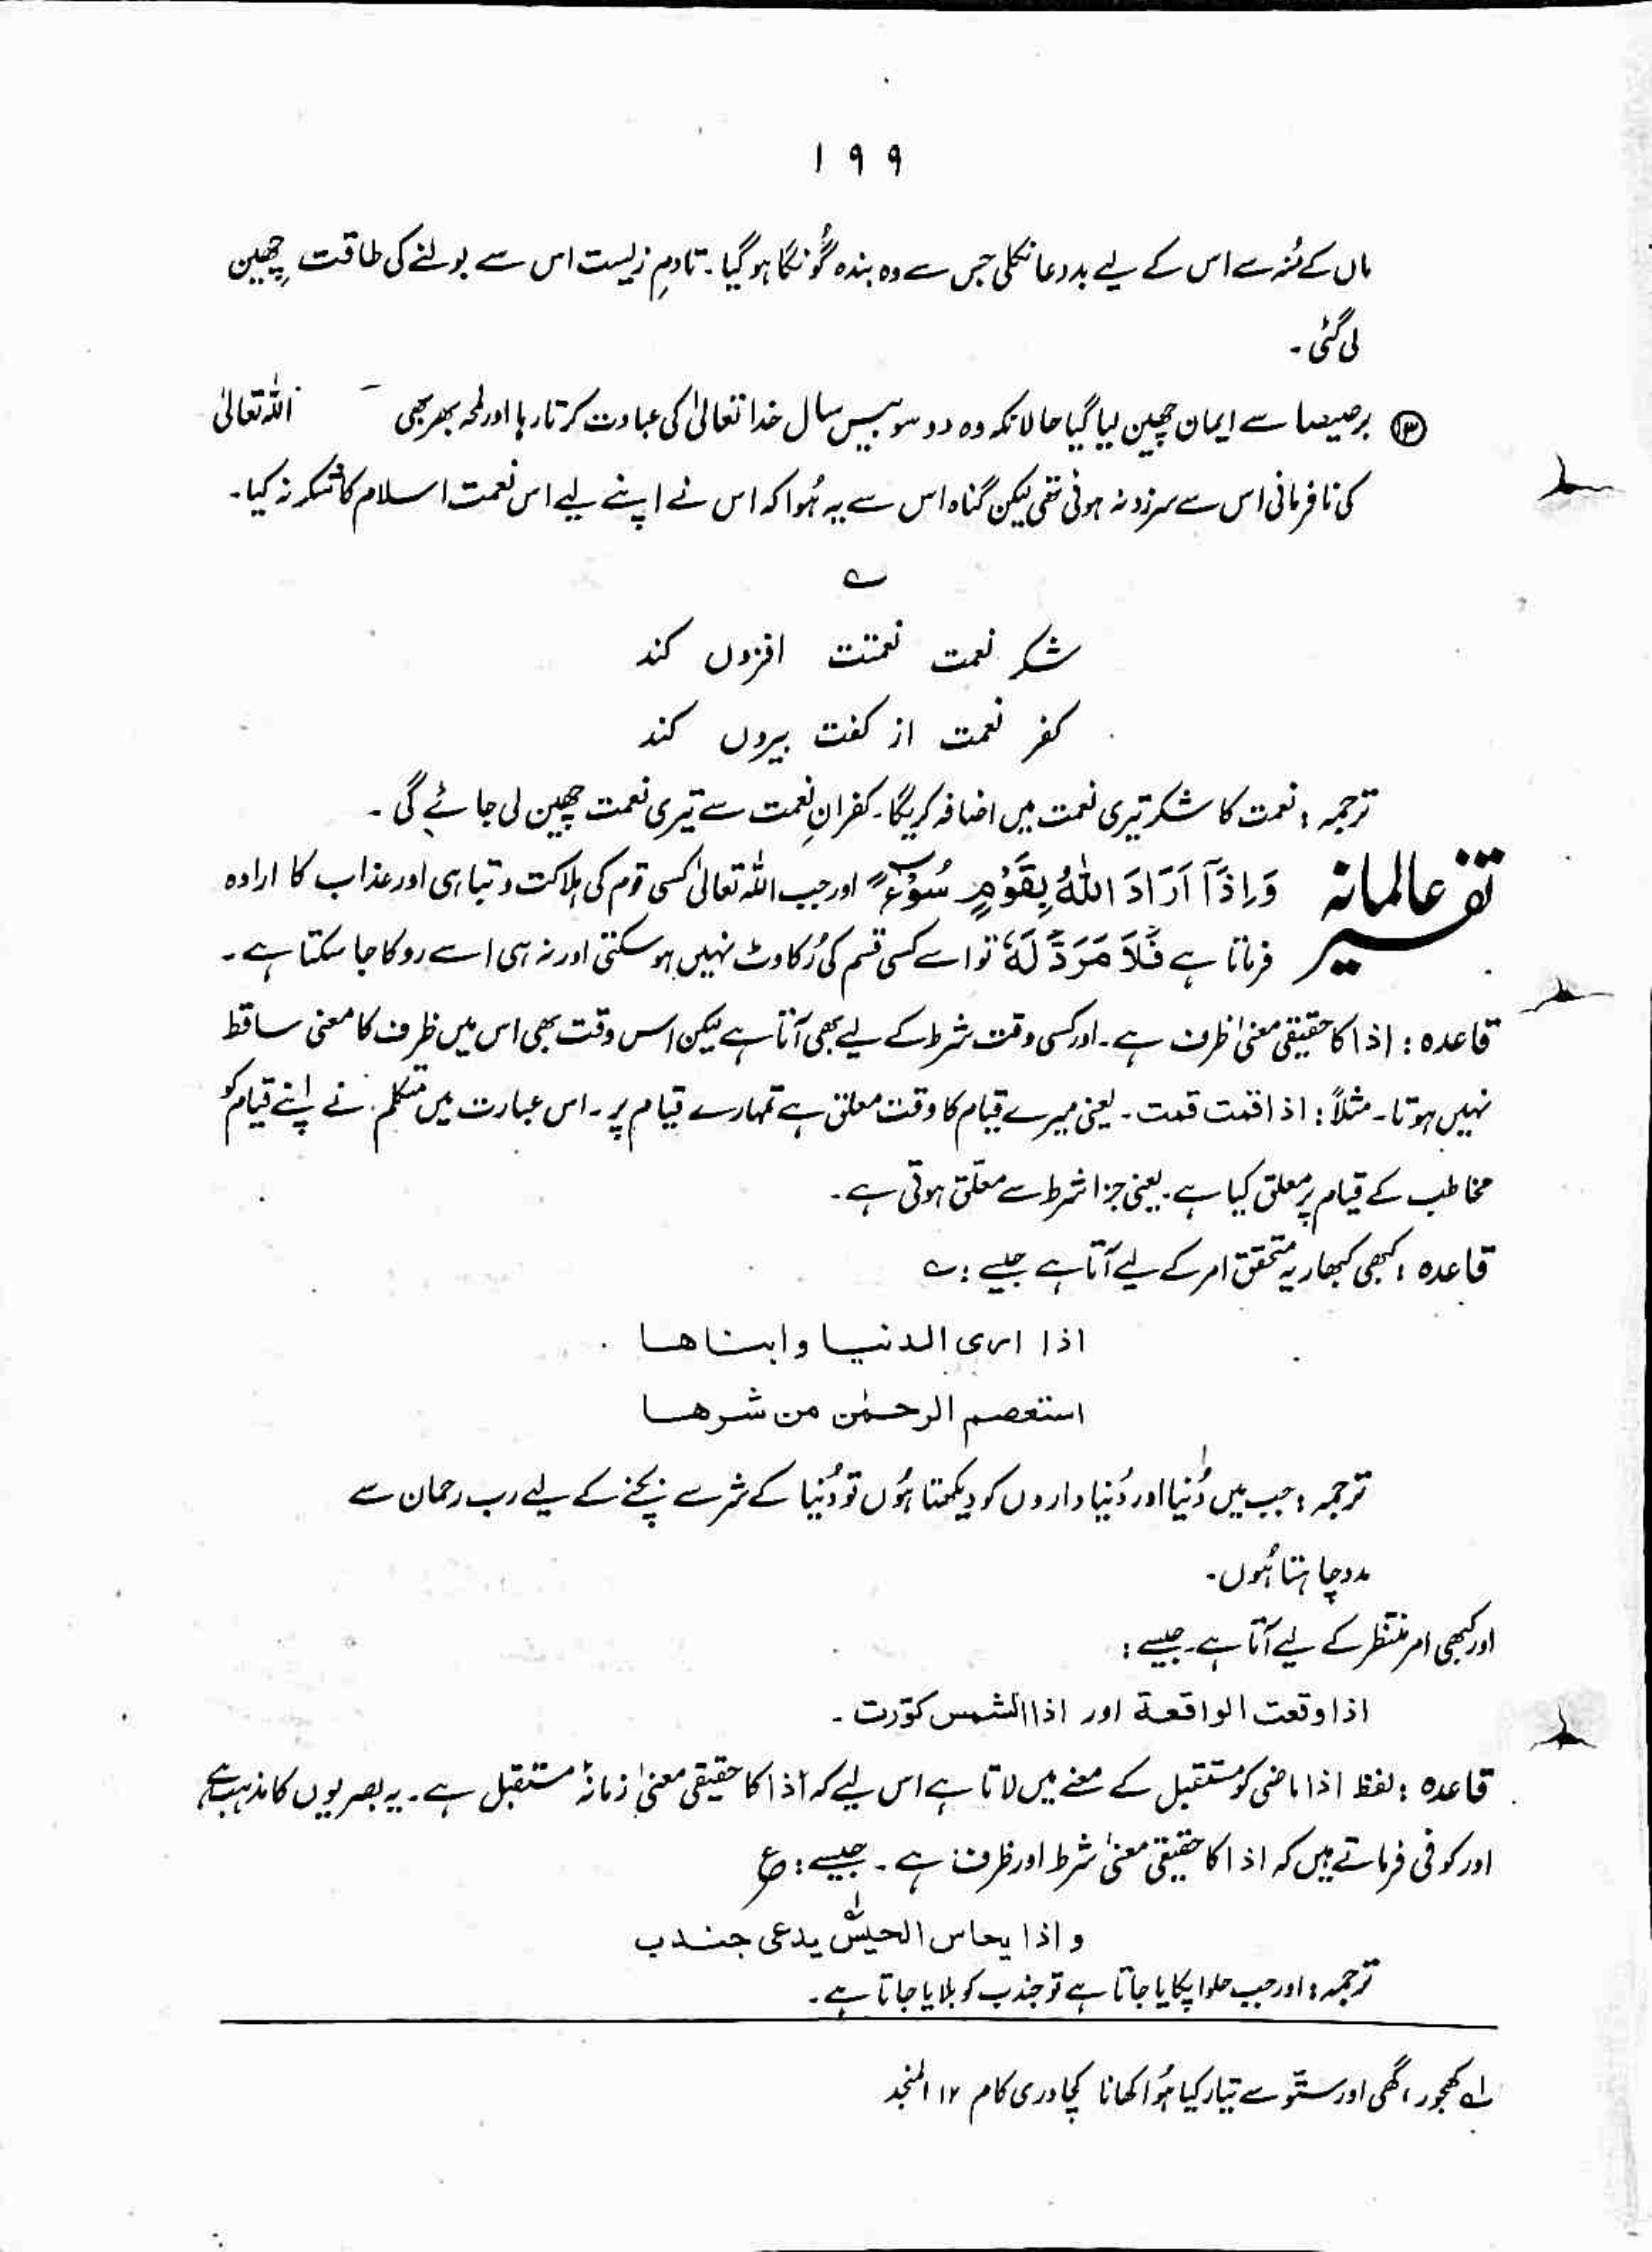 ۱۹۹
ماں کے مُنہ سے اس کے لیے بددعا نکلی جس سے وہ بندہ گُونگا ہو گیا۔ تادمِ زیست اس سے بولنے کی طاقت چھین
لی گئی۔
⑬ برصیصا سے ایمان چھین لیا گیا حالانکہ وہ دو سو بیس سال خدا تعالیٰ کی عبادت کرتا رہا اور لمحہ بھر بھی اللہ تعالیٰ
کی نافرمانی اس سے سرزد نہ ہوئی تھی لیکن گناہ اس سے یہ ہُوا کہ اس نے اپنے لیے اس نعمت اسلام کا شکر نہ کیا۔
؎
شکر نعمت نعمتت افزوں کند
کفر نعمت از کفت بیروں کند
ترجمہ: نعمت کا شکر تیری نعمت میں اضافہ کریگا۔ کفرانِ نعمت سے تیری نعمت چھین لی جائے گی۔
تفسیر عالمانہ وَاِذَآ اَرَادَ اللّٰهُ بِقَوْمٍ سُوْٓءًا اور جب اللہ تعالیٰ کسی قوم کی ہلاکت و تباہی اور عذاب کا ارادہ
فرماتا ہے فَلَا مَرَدَّ لَهٗ تو اسے کسی قسم کی رُکاوٹ نہیں ہو سکتی اور نہ ہی اسے روکا جا سکتا ہے۔
قاعدہ: اذا کا حقیقی معنیٰ ظرف ہے۔ اور کسی وقت شرط کے لیے بھی آتا ہے لیکن اس وقت بھی اس میں ظرف کا معنی ساقط
نہیں ہوتا۔ مثلاً: اذا قمت قمت۔ یعنی میرے قیام کا وقت معلق ہے تمہارے قیام پر۔ اس عبارت میں متکلم نے اپنے قیام کو
مخاطب کے قیام پر معلق کیا ہے۔ یعنی جزا شرط سے معلّق ہوتی ہے۔
قاعدہ: کبھی کبھار یہ متحقق امر کے لیے آتا ہے جیسے: ؎
اذا اری الدنیا و ابناھا
استعصم الرحمٰن من شرھا
ترجمہ: جب میں دُنیا اور دُنیا داروں کو دیکھتا ہُوں تو دُنیا کے شر سے بچنے کے لیے رب رحمان سے
مدد چاہتا ہُوں۔
اور کبھی امر منتظر کے لیے آتا ہے۔ جیسے:
اذا وقعت الواقعة اور اذا الشمس کوّرت۔
قاعدہ: لفظ اذا ماضی کو مستقبل کے معنے میں لاتا ہے اس لیے کہ اذا کا حقیقی معنیٰ زمانۂ مستقبل ہے۔ یہ بصریوں کا مذہب ہے
اور کوفی فرماتے ہیں کہ اذا کا حقیقی معنیٰ شرط اور ظرف ہے۔ جیسے: ع
و اذا یحاس الحیس لہ یدعی جندب
ترجمہ: اور جب حلوا پکایا جاتا ہے تو جندب کو بلایا جاتا ہے۔
لہ کھجور، گھی اور ستّو سے تیار کیا ہُوا کھانا کچا دری کام ۱۲ المنجد